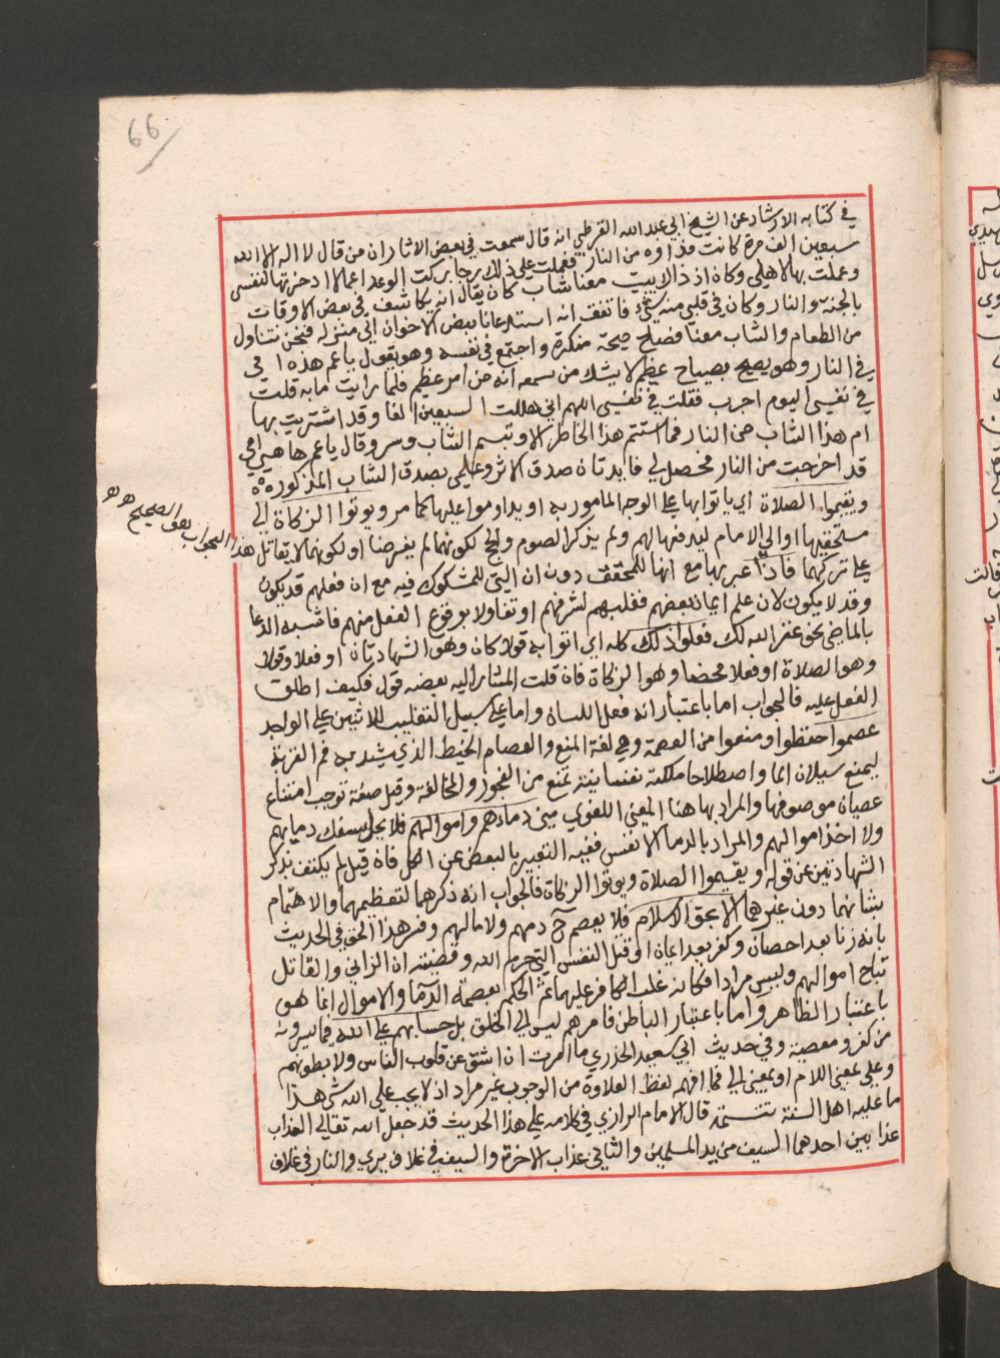 66
في كتابه الارشاد عن الشيخ ابي عبد الله القرطبي انه قال سمعت في بعض الاثار ان من قال لا اله الا الله
سبعين الف مرة كانت فداؤه من النار فعملت على ذلك رجا بركت الوعد اعمالا ادخرتها لنفسى
وعملت بها لاهلي وكان اذ ذاك يبيت معنا شاب كان يقال انه يكاشف في بعض الاوقات
بالجنة والنار وكان في قلبي منه شيء فاتفق انه استدعانا بعض الاخوان الى منزله فنحن نتناول
من الطعام والشاب معنا فصاح صيحة منكرة واجتمع في نفسه وهو يقول يا عم هذه امى
في النار وهو يصيح بصياح عظيم لا يشك من سمعه انه من امر عظيم فلما رايت ما به قلت
في نفسي اليوم اجرب فقلت في نفسى اللهم اني هللت السبعين الفا وقد اشتريت بها
ام هذا الشاب من النار فما استتم هذا الخاطر الا وتبسم الشاب وسر وقال يا عم ها هي امي
قد اخرجت من النار فحصل لي فايدتان صدق الاثر وعلمي بصدق الشاب المذكور
ويقيموا الصلاة اي ياتوا بها على الوجه المامور به او يداوموا عليها كما مر ويوتوا الزكاة الى
مستحقيها او الى الامام ليدفعها لهم ولم يذكر الصوم والحج لكونهما لم يفرضا او لكونهما لا يقاتل
هذا الجواب هو الصحيح
على تركهما فاذا عبر بها مع انها للمحقق دون ان التي للمشكوك فيه مع ان فعلهم قد يكون
وقد لا يكون لان علم ايمان بعضهم فغلبهم لشرفهم او تفاولا بوقوع الفعل منهم فاشبه الدعا
بالماضي نحو غفر الله لك فعلوا ذلك كله اي اتوا به قولا كان وهو الشهادتان او فعلا وقولا
وهو الصلاة او فعلا محضا وهو الزكاة فان قلت المشار اليه بعضه قول فكيف اطلق
الفعل عليه فالجواب اما باعتبار انه فعل اللسان واما على سبيل التغليب للاثنين على الواحد
عصموا حفظوا ومنعوا من العصمة وهي لغة المنع والعصام الخيط الذي يشد به فم القربة
ليمنع سيلان الما واصطلاحا ملكة نفسانية تمنع من الفجور والمخالفة وقيل صفة توجب امتناع
عصيان موصوفها والمراد بها هنا المعنى اللغوي مني دماءهم واموالهم فلا يحل سفك دمايهم
ولا اخذ اموالهم والمراد بالدما الانفس ففيه التعبير بالبعض عن الكل فان قيل لم يكتف بذكر
الشهادتين عن قوله ويقيموا الصلاة ويوتوا الزكاة فالجواب انه ذكرهما لتعظيمهما والاهتمام
بشانهما دون غيرهما الا بحق الاسلام فلا يعصم ح دمهم ولا مالهم وفسر هذا الحق في الحديث
بانه زنا بعد احصان وكفر بعد ايمان او قتل النفس التي حرم الله وقضيته ان الزاني والقاتل
تباح اموالهم وليس مرادا فكانه غلب الكافر عليهما ثم الحكم بعصمة الدما والاموال انما هو
باعتبار الظاهر واما باعتبار الباطن فامرهم ليس الى الخلق بل حسابهم على الله فيما يسرونه
من كفر ومعصية وفي حديث ابي سعيد الخدري ما امرت ان اشق عن قلوب الناس ولا بطونهم
وعلى بمعنى اللام او بمعنى الى فما افهم لفظ العلاوة من الوجوب غير مراد اذ لا يجب على الله شى هذا
ما عليه اهل السنة تتمة قال الامام الرازي في كلامه على هذا الحديث قد جعل الله تعالى العذاب
عذابين احدهما السيف من يد المسلمين والثاني عذاب الاخرة والسيف في غلاف يرى والنار في غلاف